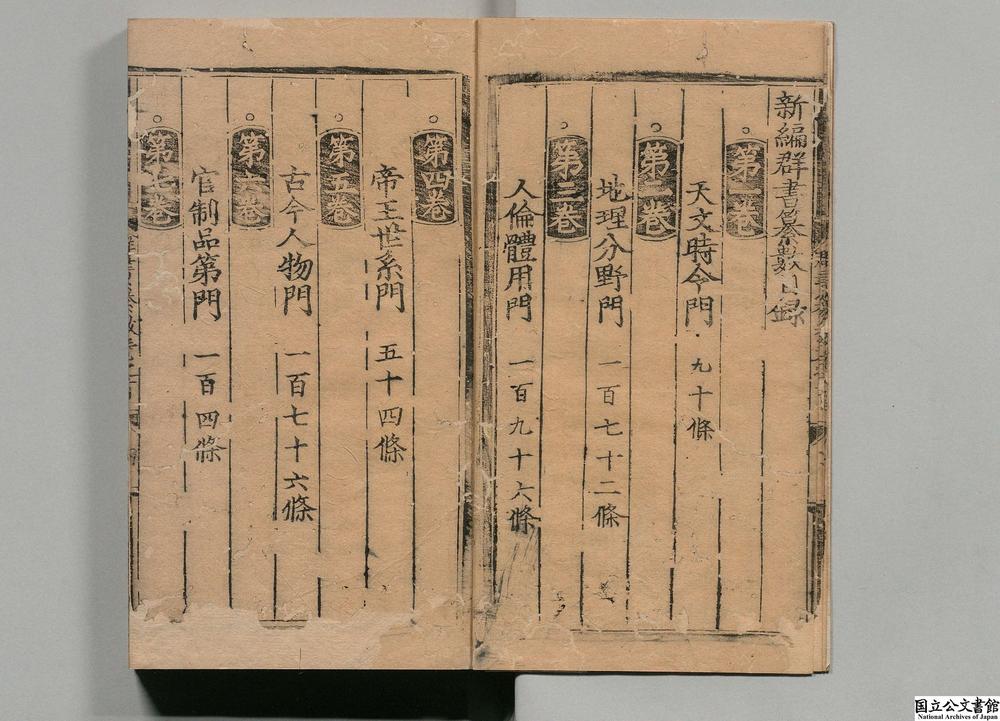 新編群書纂數目録
第一卷
天文時令門 九十條
第二卷
地理分野門 一百七十二條
第三卷
人倫體用門 一百九十六條
第四卷
帝王世系門 五十四條
第五卷
古今人物門 一百七十六條
第六卷
官制品第門 一百四條
第七卷
国立公文書館
National Archives of Japan